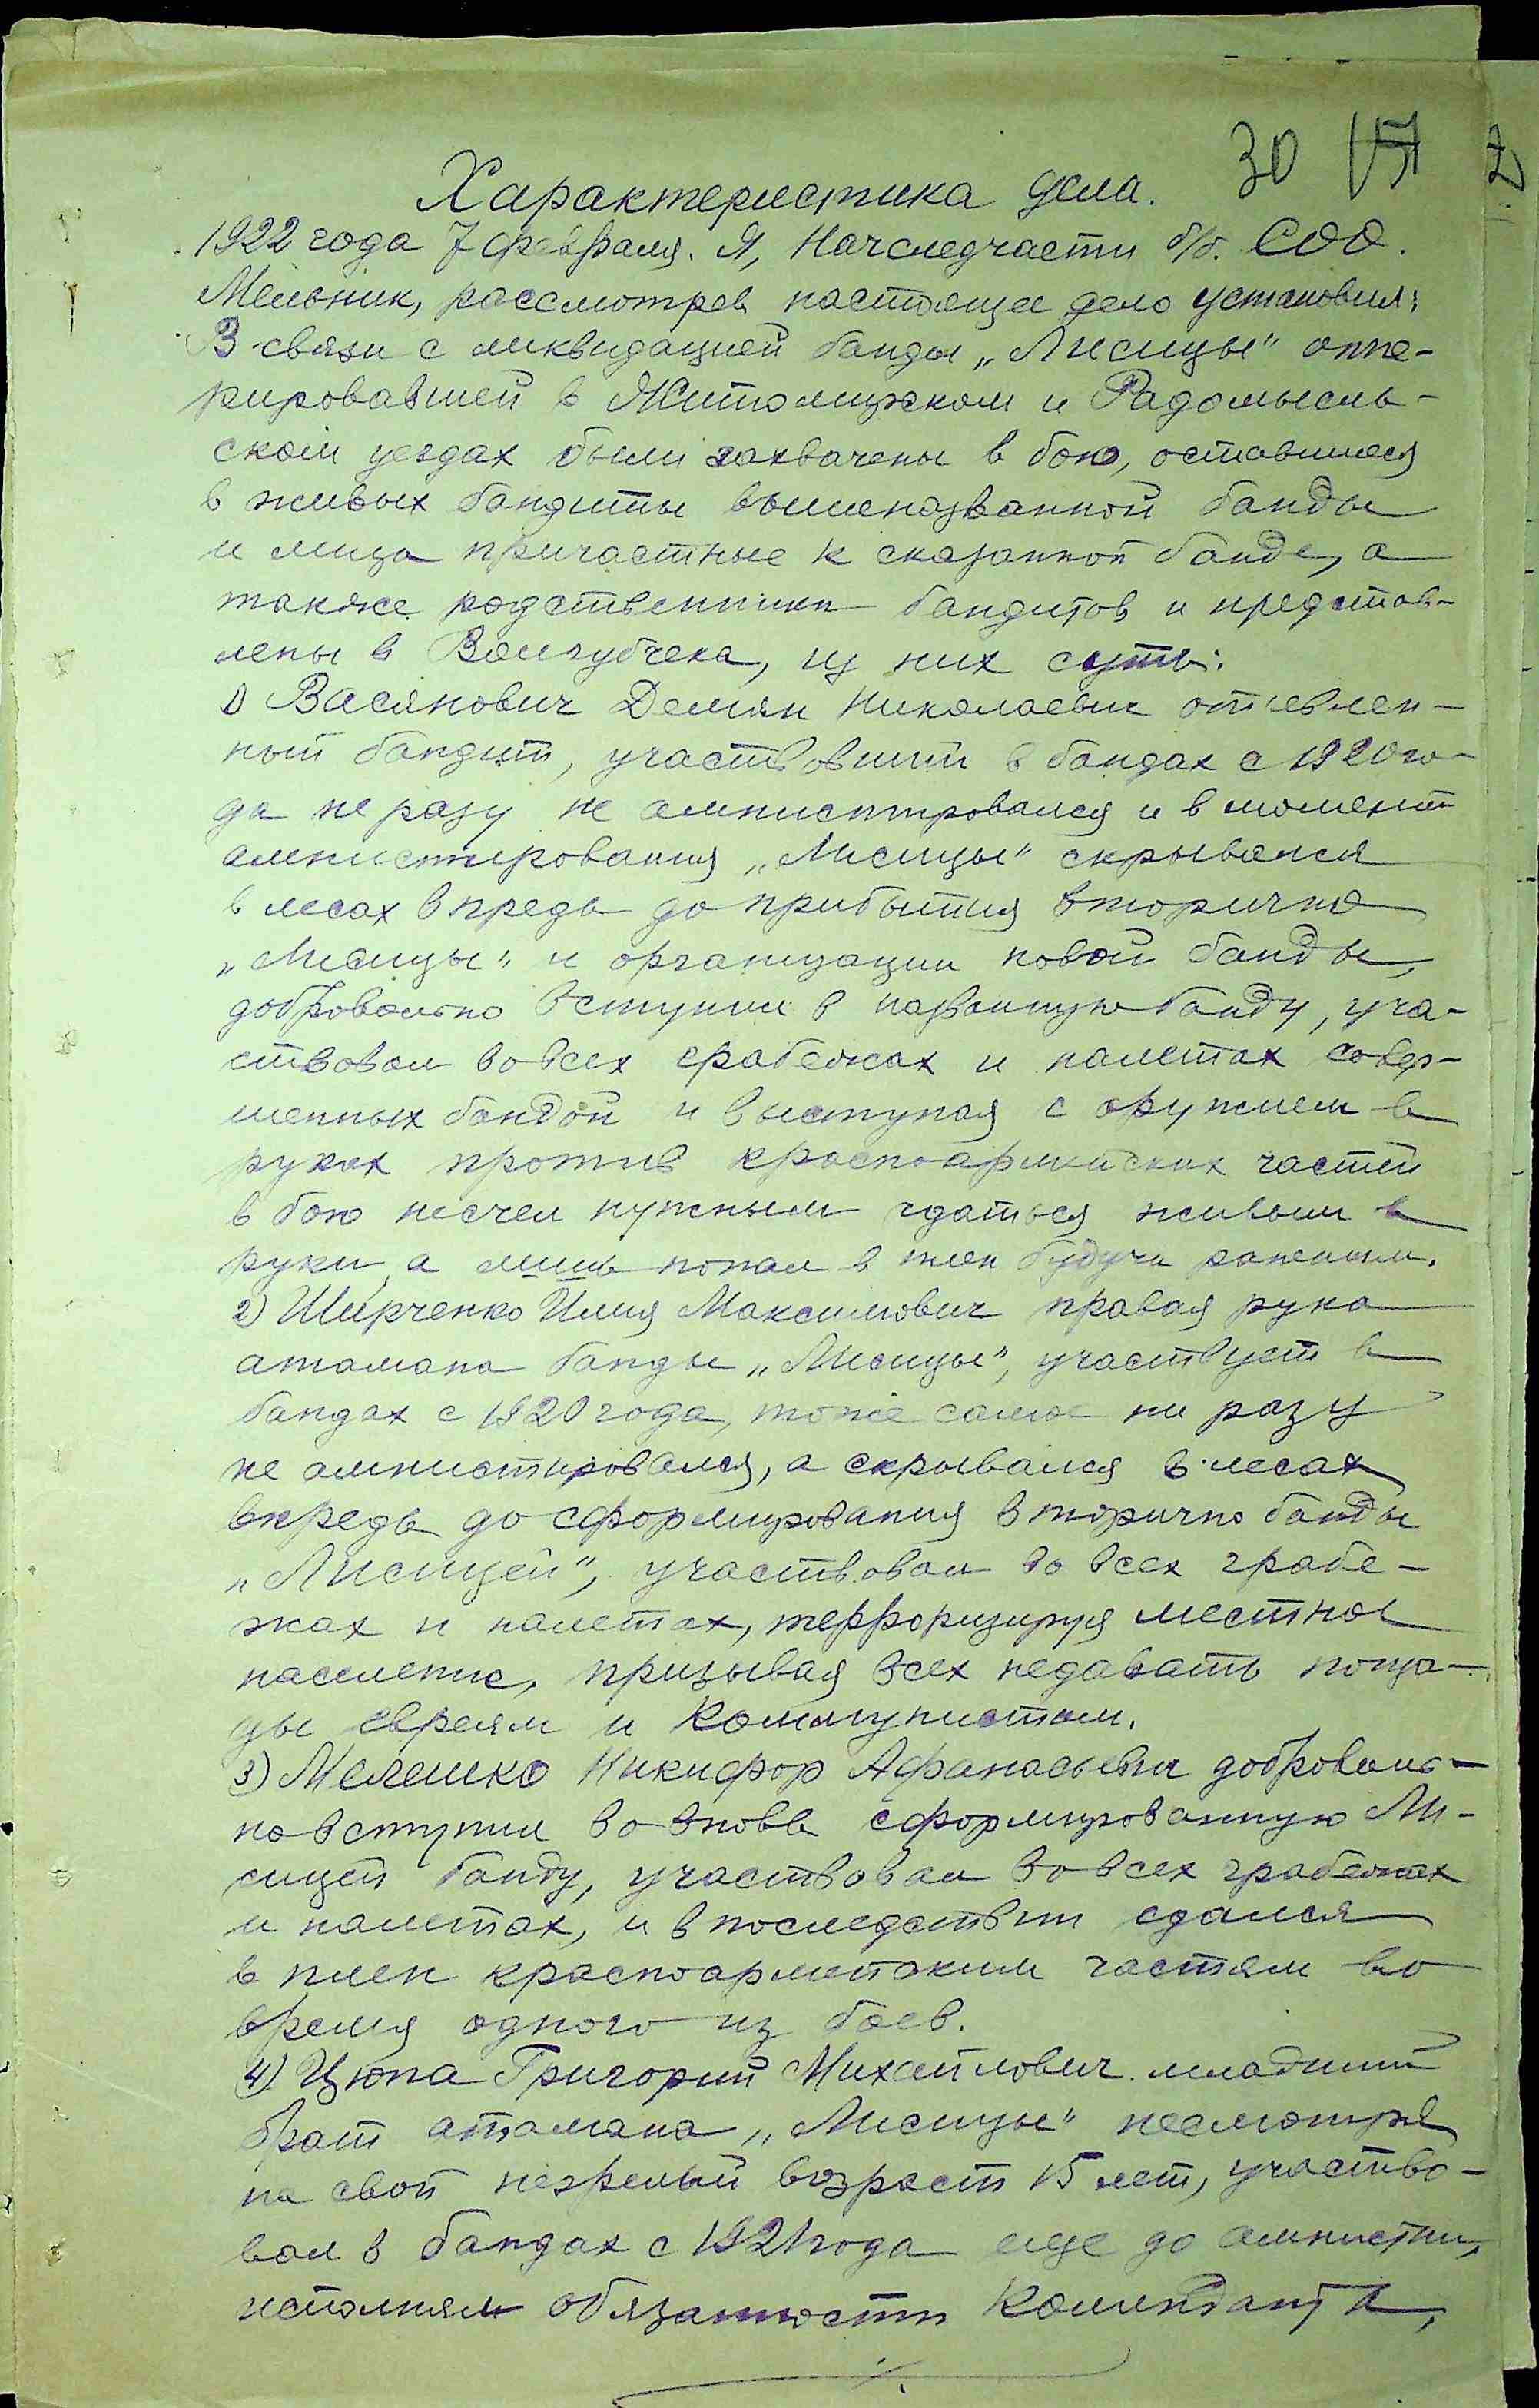 30
Характеристика дела.
1922 года 7 февраля. Я, Начследчасти б/б. СОО.
Мельник, рассмотрев настоящее дело установил:
В связи с ликвидацией банды „Лисицы" оппе-
рировавшей в Житомирском и Радомысль-
ском уездах были захвачены в бою, оставшиеся
в живых бандиты вышеназванной банды
и лица причастные к сказанной банде, а
также родственники бандитов и представ-
лены в Волгубчека, из них суть:
1) Васянович Демян Николаевич отъевлен-
ный бандит, участвовший в бандах с 1920 го-
да не разу не амнистировался и в момент
амнистирования „Лисицы" скрывался
в лесах впредь до прибытия вторично
„Лисицы" и организации новой банды,
добровольно вступил в названную банду, уча-
ствовал во всех грабежах и налетах совер-
шенных бандой и выступая с оружием в
руках против красноармейских частей
в бою несчел нужным сдаться живым в
руки, а лишь попал в плен будучи раненым.
2) Ширченко Илия Максимович правая рука
атамана банды „Лисицы", участвует в
бандах с 1920 года, тоже самое ни разу
не амнистировался, а скрывался в лесах
впредь до сформирования вторично банды
„Лисицей", участвовал во всех грабе-
жах и налетах, терроризируя местное
население, призывая всех недавать поща-
ды евреям и коммунистам.
3) Мелешко Никифор Афанасьевич доброволь-
но вступил во вновь сформированную Ли-
сицей банду, участвовал во всех грабежах
и налетах, и впоследствии сдался
в плен красноармейским частям во
время одного из боев.
4) Цюпа Григорий Михайлович младший
брат атамана „Лисицы" несмотря
на свой незрелый возраст 15 лет, участво-
вал в бандах с 1921 года еще до амнистии,
исполнял обязанности коменданта,